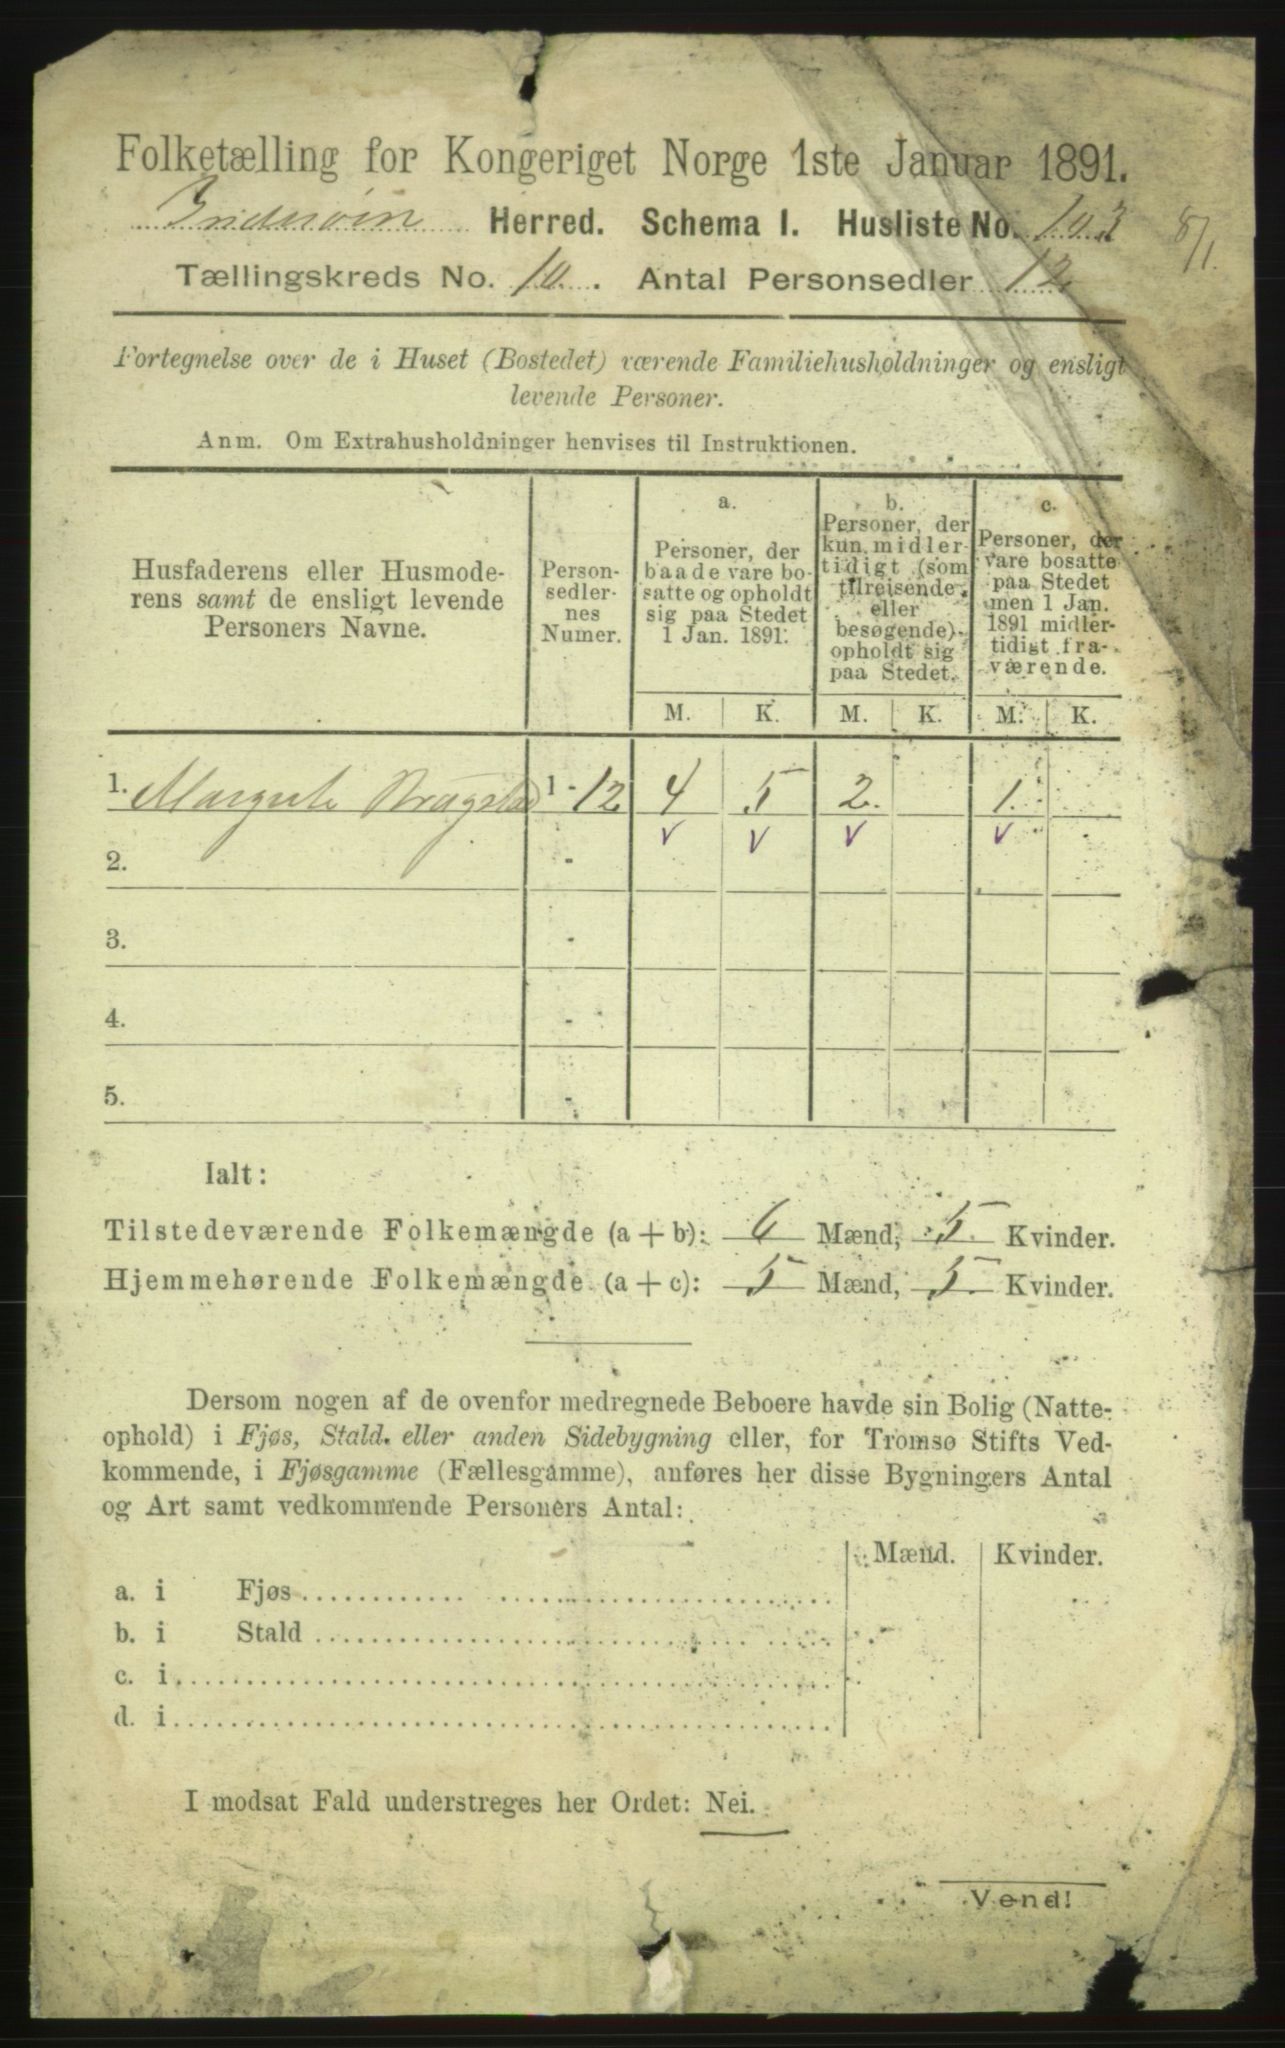 Folketælling for Kongeriget Norge 1ste Januar 1891.
Inderøen Herred. Schema I. Husliste No. 103 8/1.
Tællingskreds No. 10. Antal Personsedler 12.
Fortegnelse over de i Huset (Bostedet) værende Familiehusholdninger og ensligt
levende Personer.
Anm. Om Extrahusholdninger henvises til Instruktionen.
Husfaderens eller Husmode-
rens samt de ensligt levende
Personers Navne.
Person-
sedler-
nes
Numer.
a.
Personer, der
baade vare bo-
satte og opholdt
sig paa Stedet
1 Jan. 1891.
b.
Personer, der
kun midler-
tidigt (som
tilreisende
eller
besøgende)
opholdt sig
paa Stedet.
c.
Personer, der
vare bosatte
paa Stedet
men 1 Jan.
1891 midler-
tidigt fra-
værende.
M. K. M. K. M. K.
1. Margrete 1 - 12 4 5 2. 1.
v v v v
2. -
3. -
4. -
5. -
Ialt:
Tilstedeværende Folkemængde (a + b): 6 Mænd, 5. Kvinder.
Hjemmehørende Folkemængde (a + c): 5 Mænd, 5. Kvinder.
Dersom nogen af de ovenfor medregnede Beboere havde sin Bolig (Natte-
ophold) i Fjøs, Stald eller anden Sidebygning eller, for Tromsø Stifts Ved-
kommende, i Fjøsgamme (Fællesgamme), anføres her disse Bygningers Antal
og Art samt vedkommende Personers Antal:
Mænd. Kvinder.
a. i Fjøs
b. i Stald
c. i
d. i
I modsat Fald understreges her Ordet: Nei.
Vend!